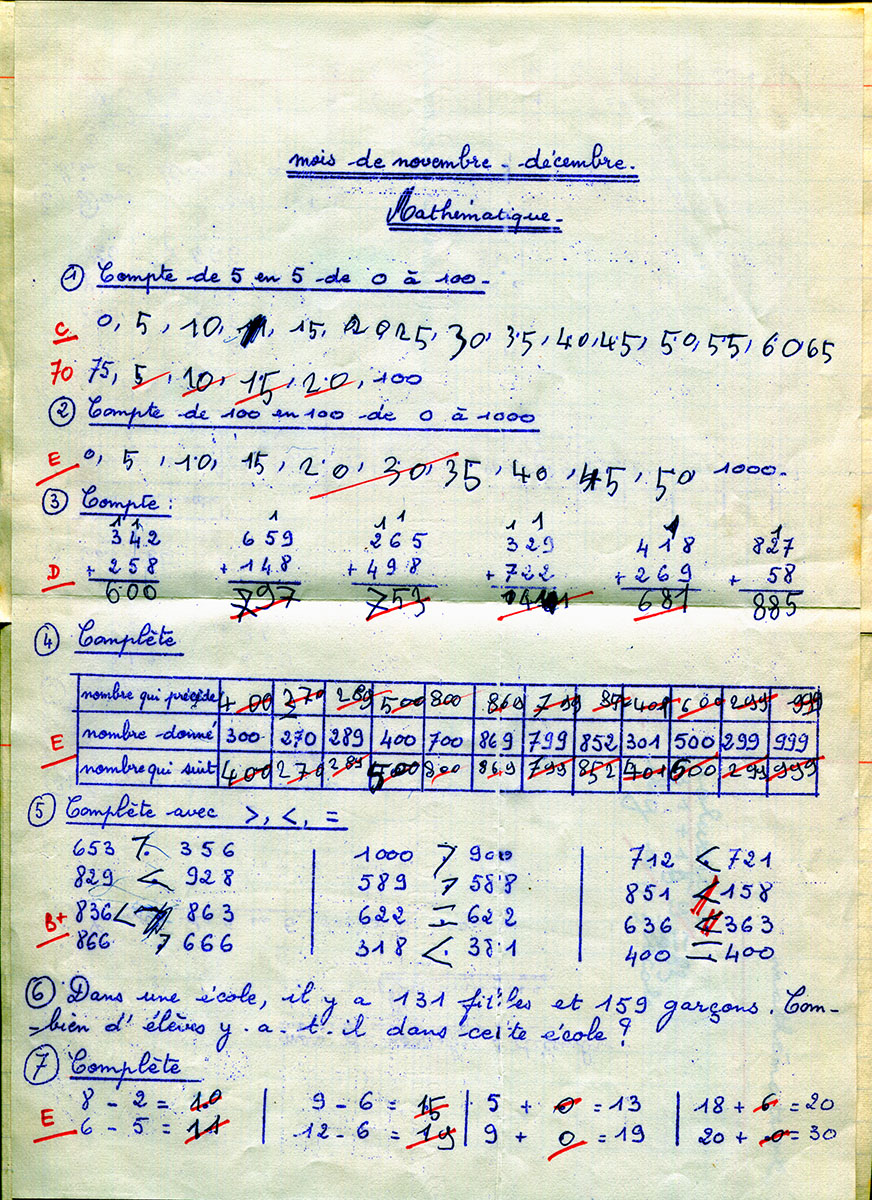 mois de novembre - décembre.
Mathématique.
① Compte de 5 en 5 de 0 à 100.
C 0, 5, 10, 15, 20 25, 30, 35, 40, 45, 50, 55, 60 65
70 75, 5, 10, 15, 20, 100
② Compte de 100 en 100 de 0 à 1000
E 0, 5, 10, 15, 20, 30, 35, 40, 45, 50 1000.
③ Compte :
1 1 1 1 1 1 1 1 1
342 659 265 329 418 827
D + 258 + 148 + 498 + 722 + 269 + 58
600 797 753 681 885
④ Complète
nombre qui précède 400 370 289 500 800 869 799 401 600 299 999
E nombre donné 300 270 289 400 700 869 799 852 301 500 299 999
nombre qui suit 400 270 289 500 800 869 799 852 401 600 299 999
⑤ Complète avec >, <, =
653 > 356 1000 > 900 712 < 721
829 < 928 589 > 588 851 < 158
B+ 836 < 863 622 = 622 636 < 363
866 > 666 318 < 381 400 = 400
⑥ Dans une école, il y a 131 filles et 159 garçons. Com-
-bien d'élèves y-a-t-il dans cette école ?
⑦ Complète
8 - 2 = 10 9 - 6 = 15 5 + 0 = 13 18 + 6 = 20
E 6 - 5 = 11 12 - 6 = 19 9 + 0 = 19 20 + 0 = 30